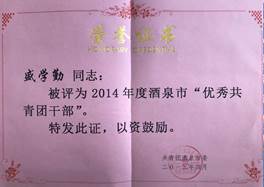 荣誉证书
盛学勤 同志：
被评为2014年度酒泉市“优秀共
青团干部”。
特发此证，以资鼓励。
共青团酒泉市委